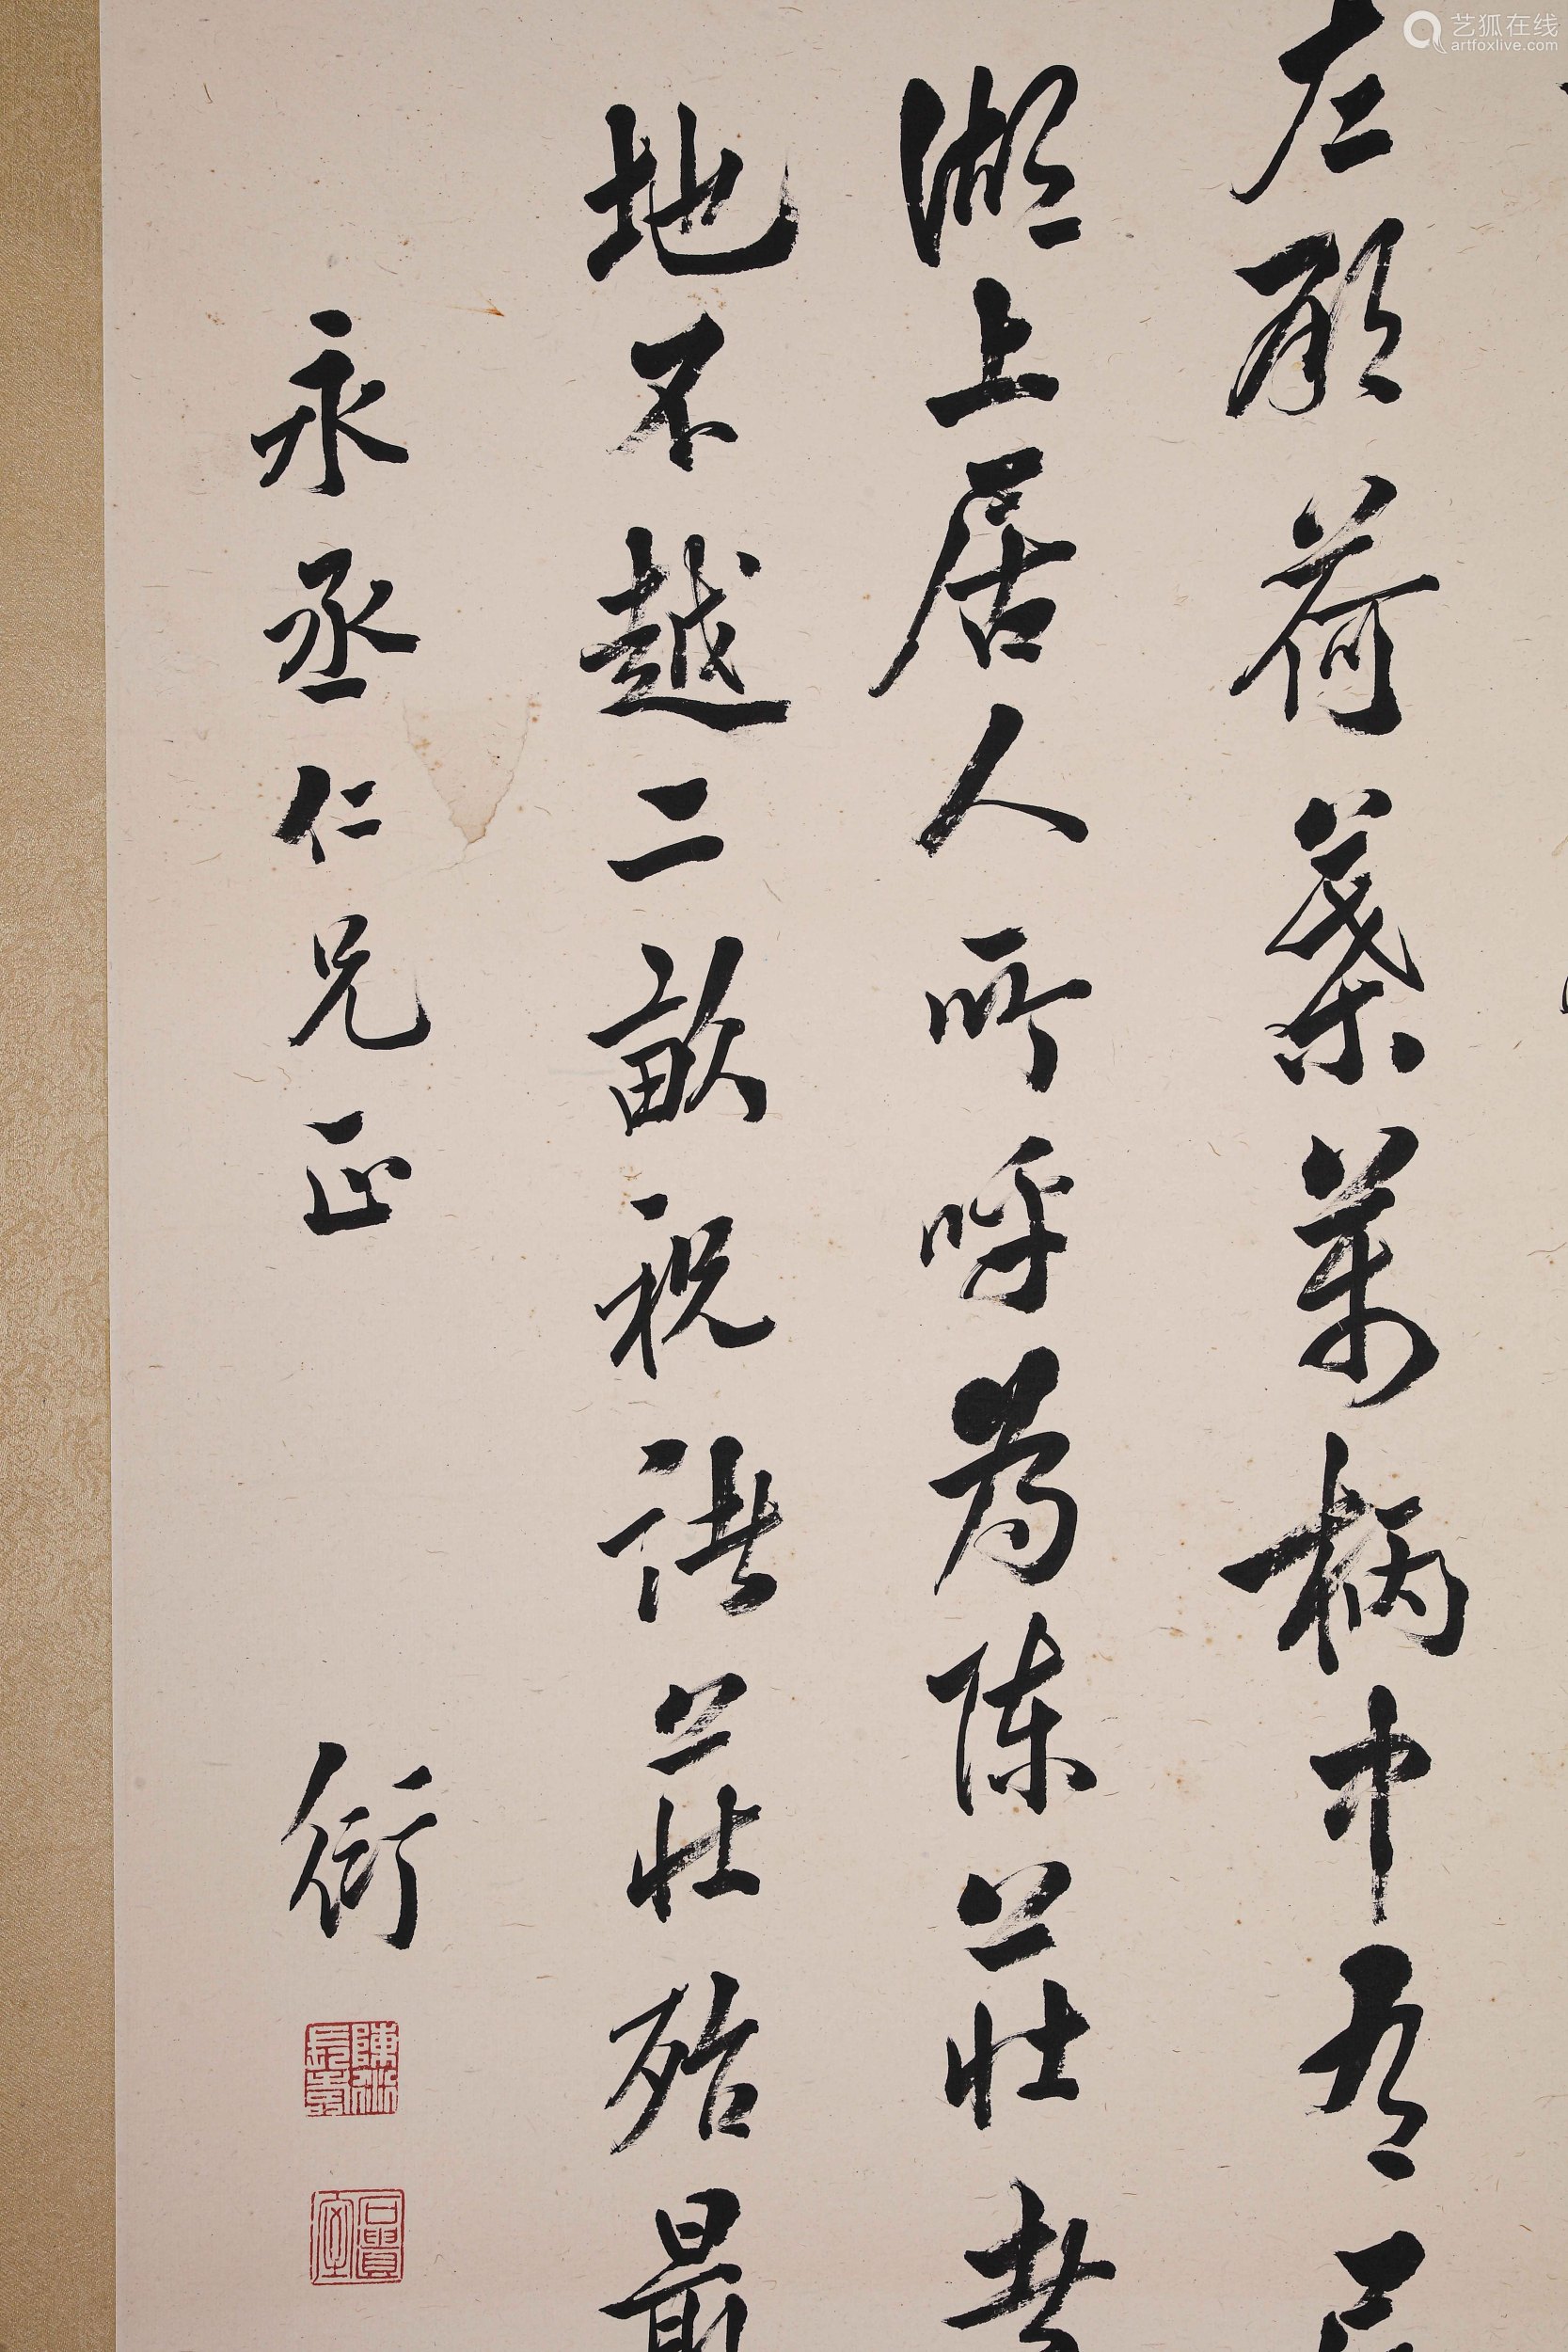 左顾荷葉萬柄中爲
湖上居人所呼為陳公莊者
地不越二畝視諸公莊殆最
永丞仁兄正
衍
陳衍長壽
石遺室
艺狐在线
artfoxlive.com